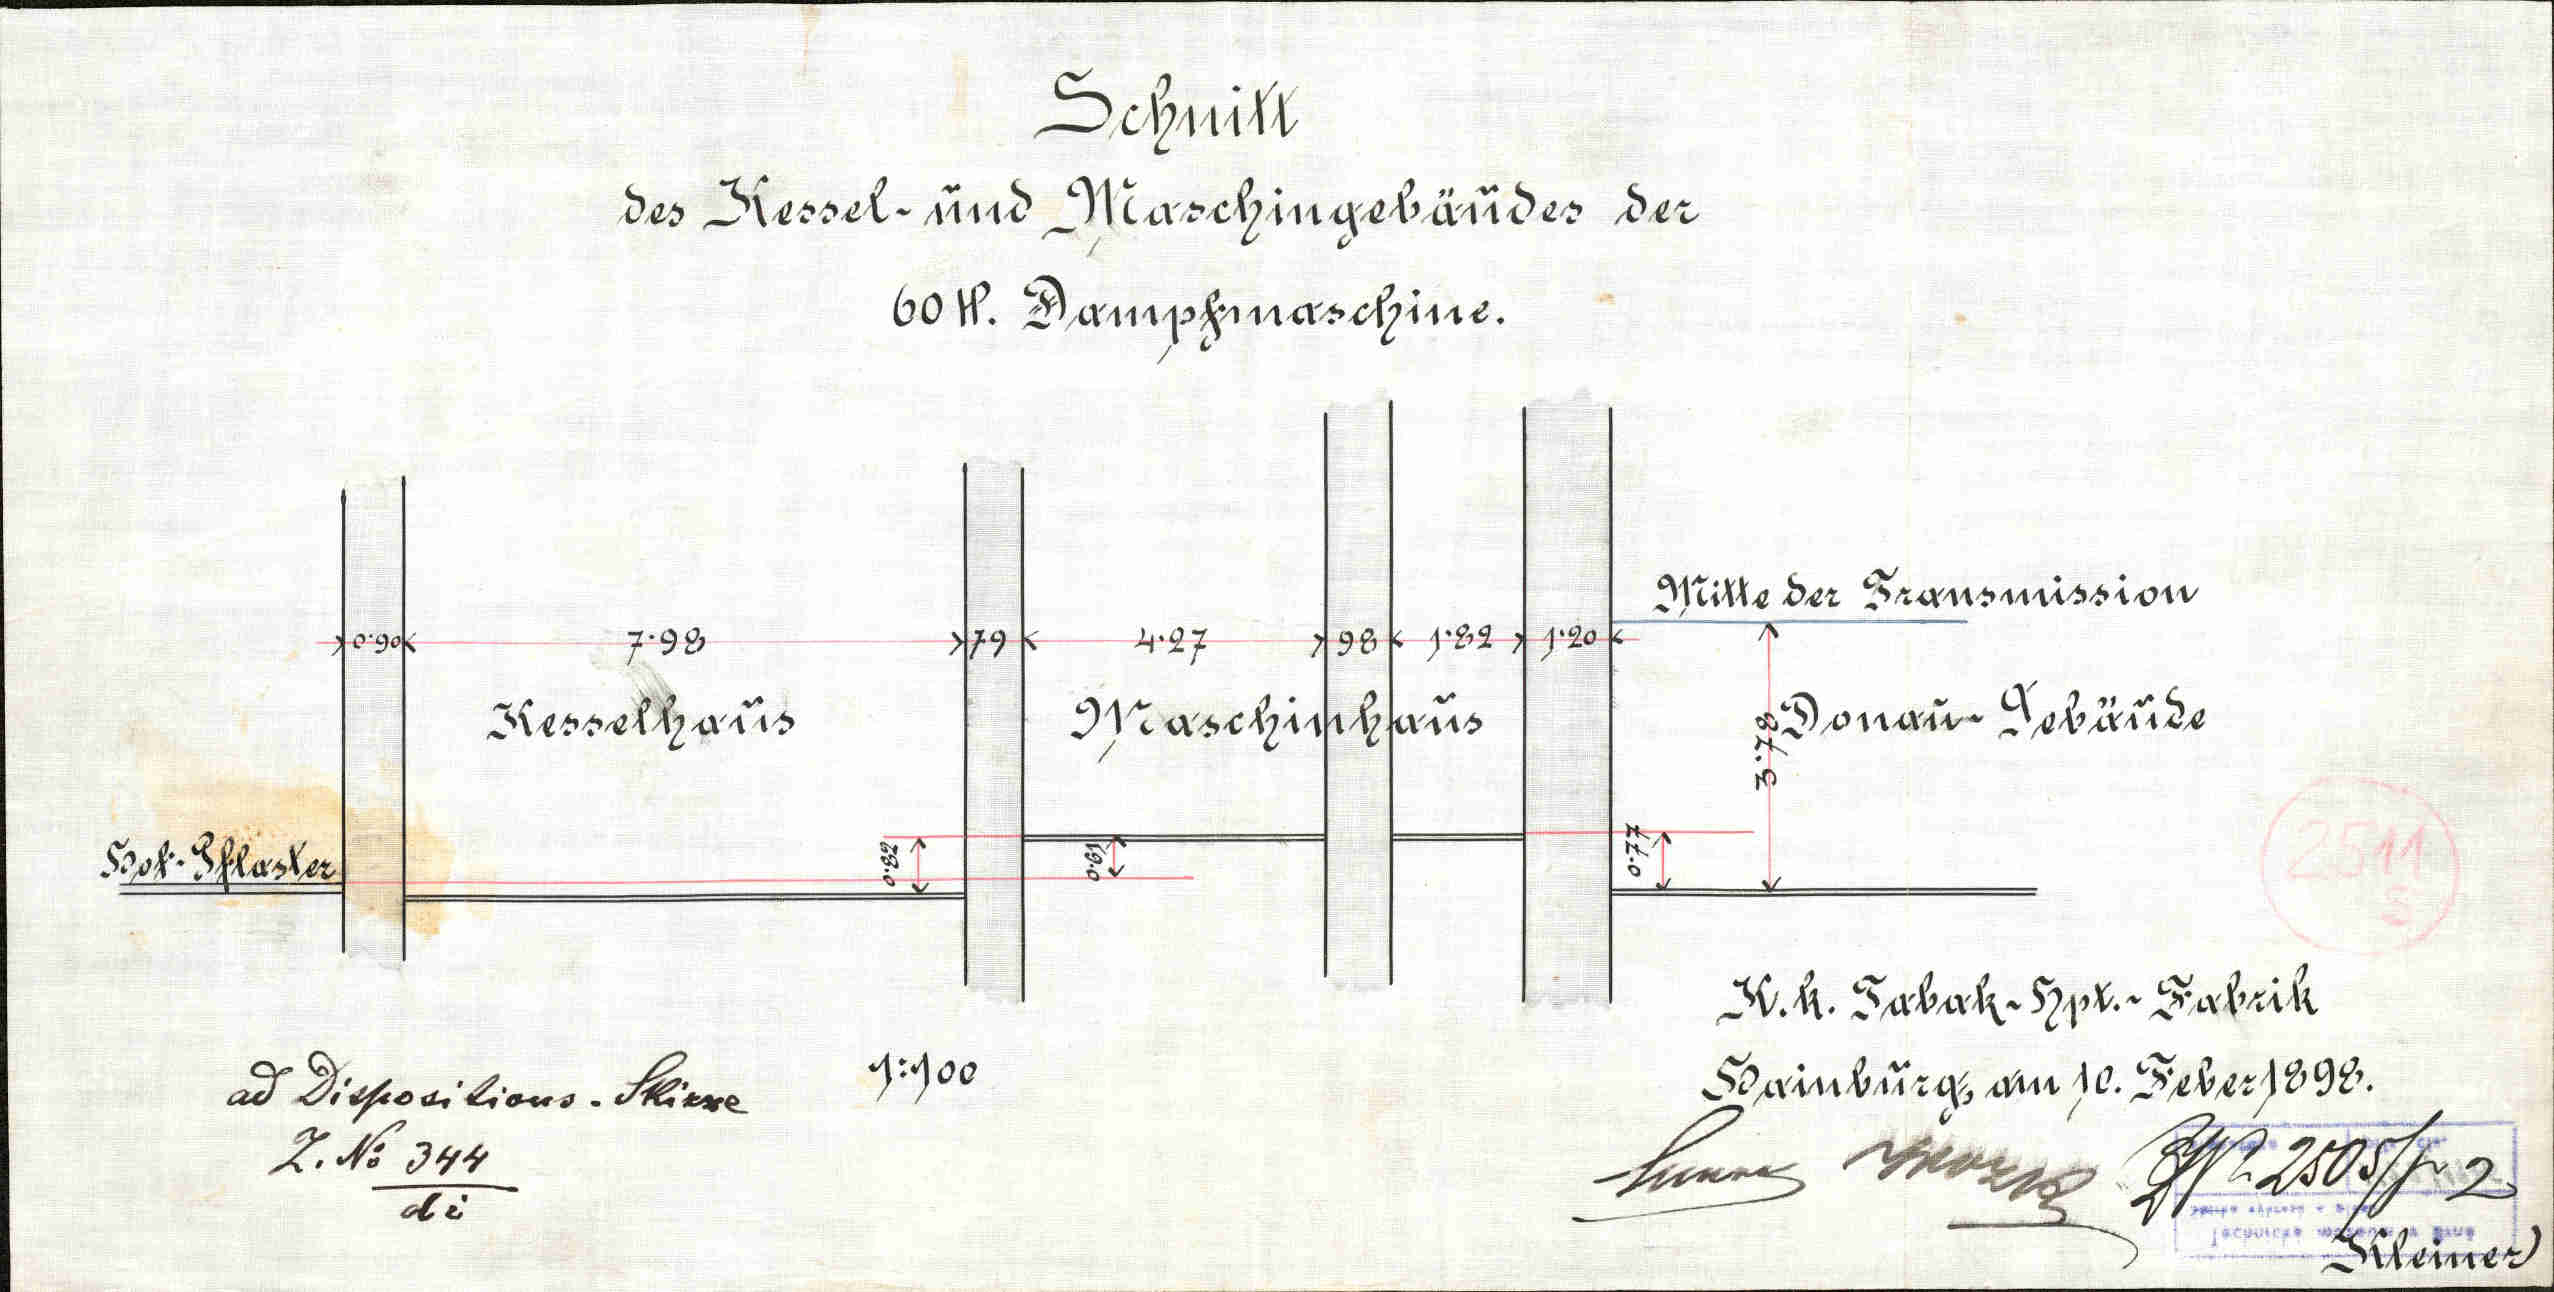 Schnitt
des Kessel- und Maschingebäudes der
60 H. Dampfmaschine.
Mitte der Transmission
0·90 7·98 79 4·27 98 1·82 1·20
Kesselhaus Maschinhaus 3·78 Donau-Gebäude
Hof-Pflaster 0·82 0·61 0·77
K. k. Tabak-Hpt.-Fabrik
1:100
ad Dispositions-Skizze
Hainburg, am 10. Feber 1898.
Z. No 344
di
2505/2
Kleiner
2511
S